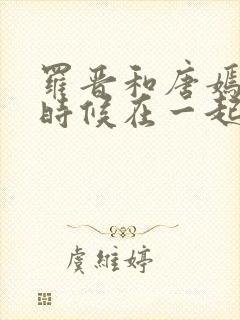 羅晉和唐嫣
時候在一起
虞維婷